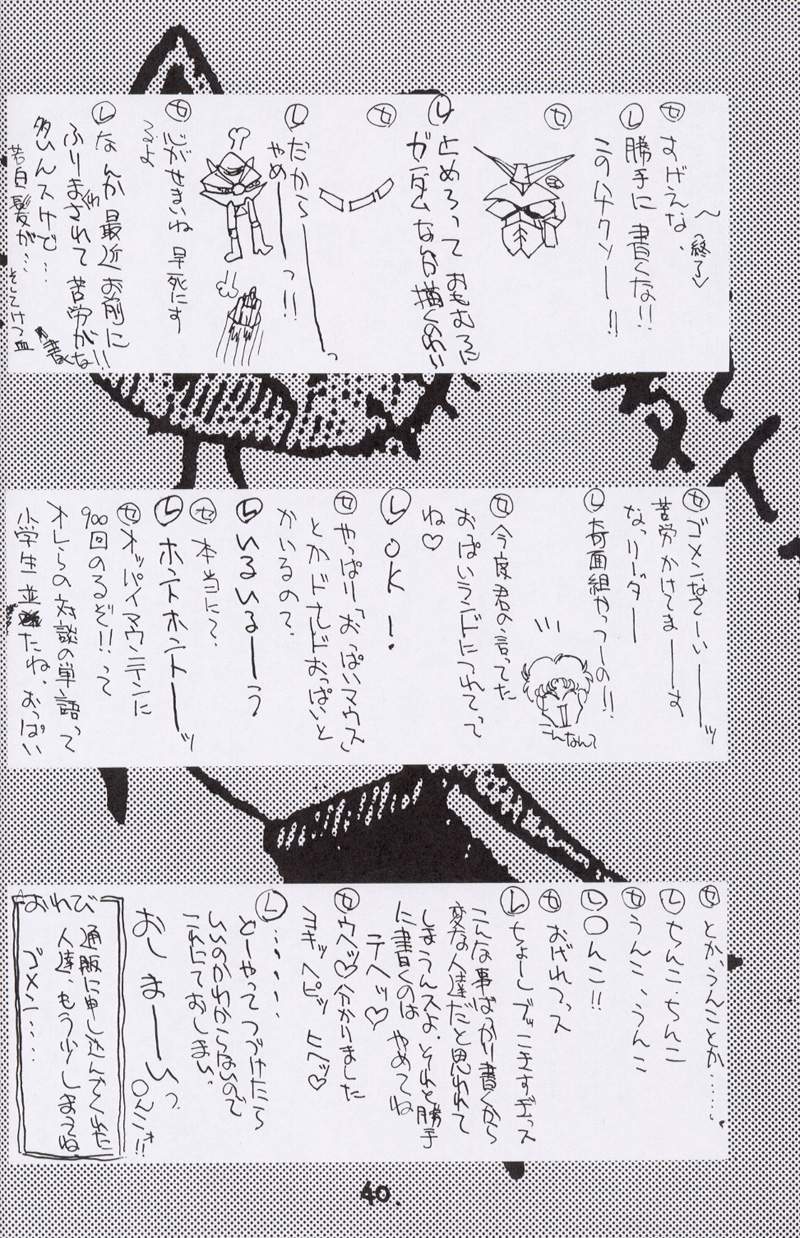 ㋝すげえな、
〜終了♡
Ⓛ勝手に書くな!!
このハナクソー!!
㋝
Ⓛ止めろって おもむろに
ガンダムなんか描くのわい
㋝
Ⓛだからー
やめーーっ!!
㋝心がせまいね 早死にす
るよ
Ⓛなんか最近お前に
ふりまわされて苦労がな!!
多ひんスケで…
若白髪が…
㋝ゴメンなさーいーーッ
苦労かけてまーーす
なっリーダー
Ⓛ奇面組かっつーの!!
こんなんて
㋝今度君の言ってた
おっぱいランドにつれてって
ね♡
ⓁOK!
㋝やっぱり「おっぱいマウス」
とかドナルドおっぱいと
かいるの?
Ⓛいるいるーーう
㋝本当に?
Ⓛホントホントーーッ
㋝オッパイマウンテンに
900回のるぞ!!って
オレらの対談の単語って
小学生並みだね、おっぱい
㋝とかうんことか……
Ⓛちんこ、ちんこ
㋝うんこ、うんこ
Ⓛ〇んこ!!
㋝おげれつっス
Ⓛちょーしブッこきすぎっス
こんな事ばっかり書くから
変な人達だと思われて
しまうんスよ、それと勝手
に書くのは やめてね
テヘッ♡
㋝ウヘッ♡分かりました
ヨキッ ヘピッ ヒヘッ♡
Ⓛ……
どーやってつづけたら
いいのかわからないので
これにておしまい。
おしまーいっ
〇んこ!!
おわび
通販に申し込んでくれた
人達、もう少しまってね
ゴメン…
40.